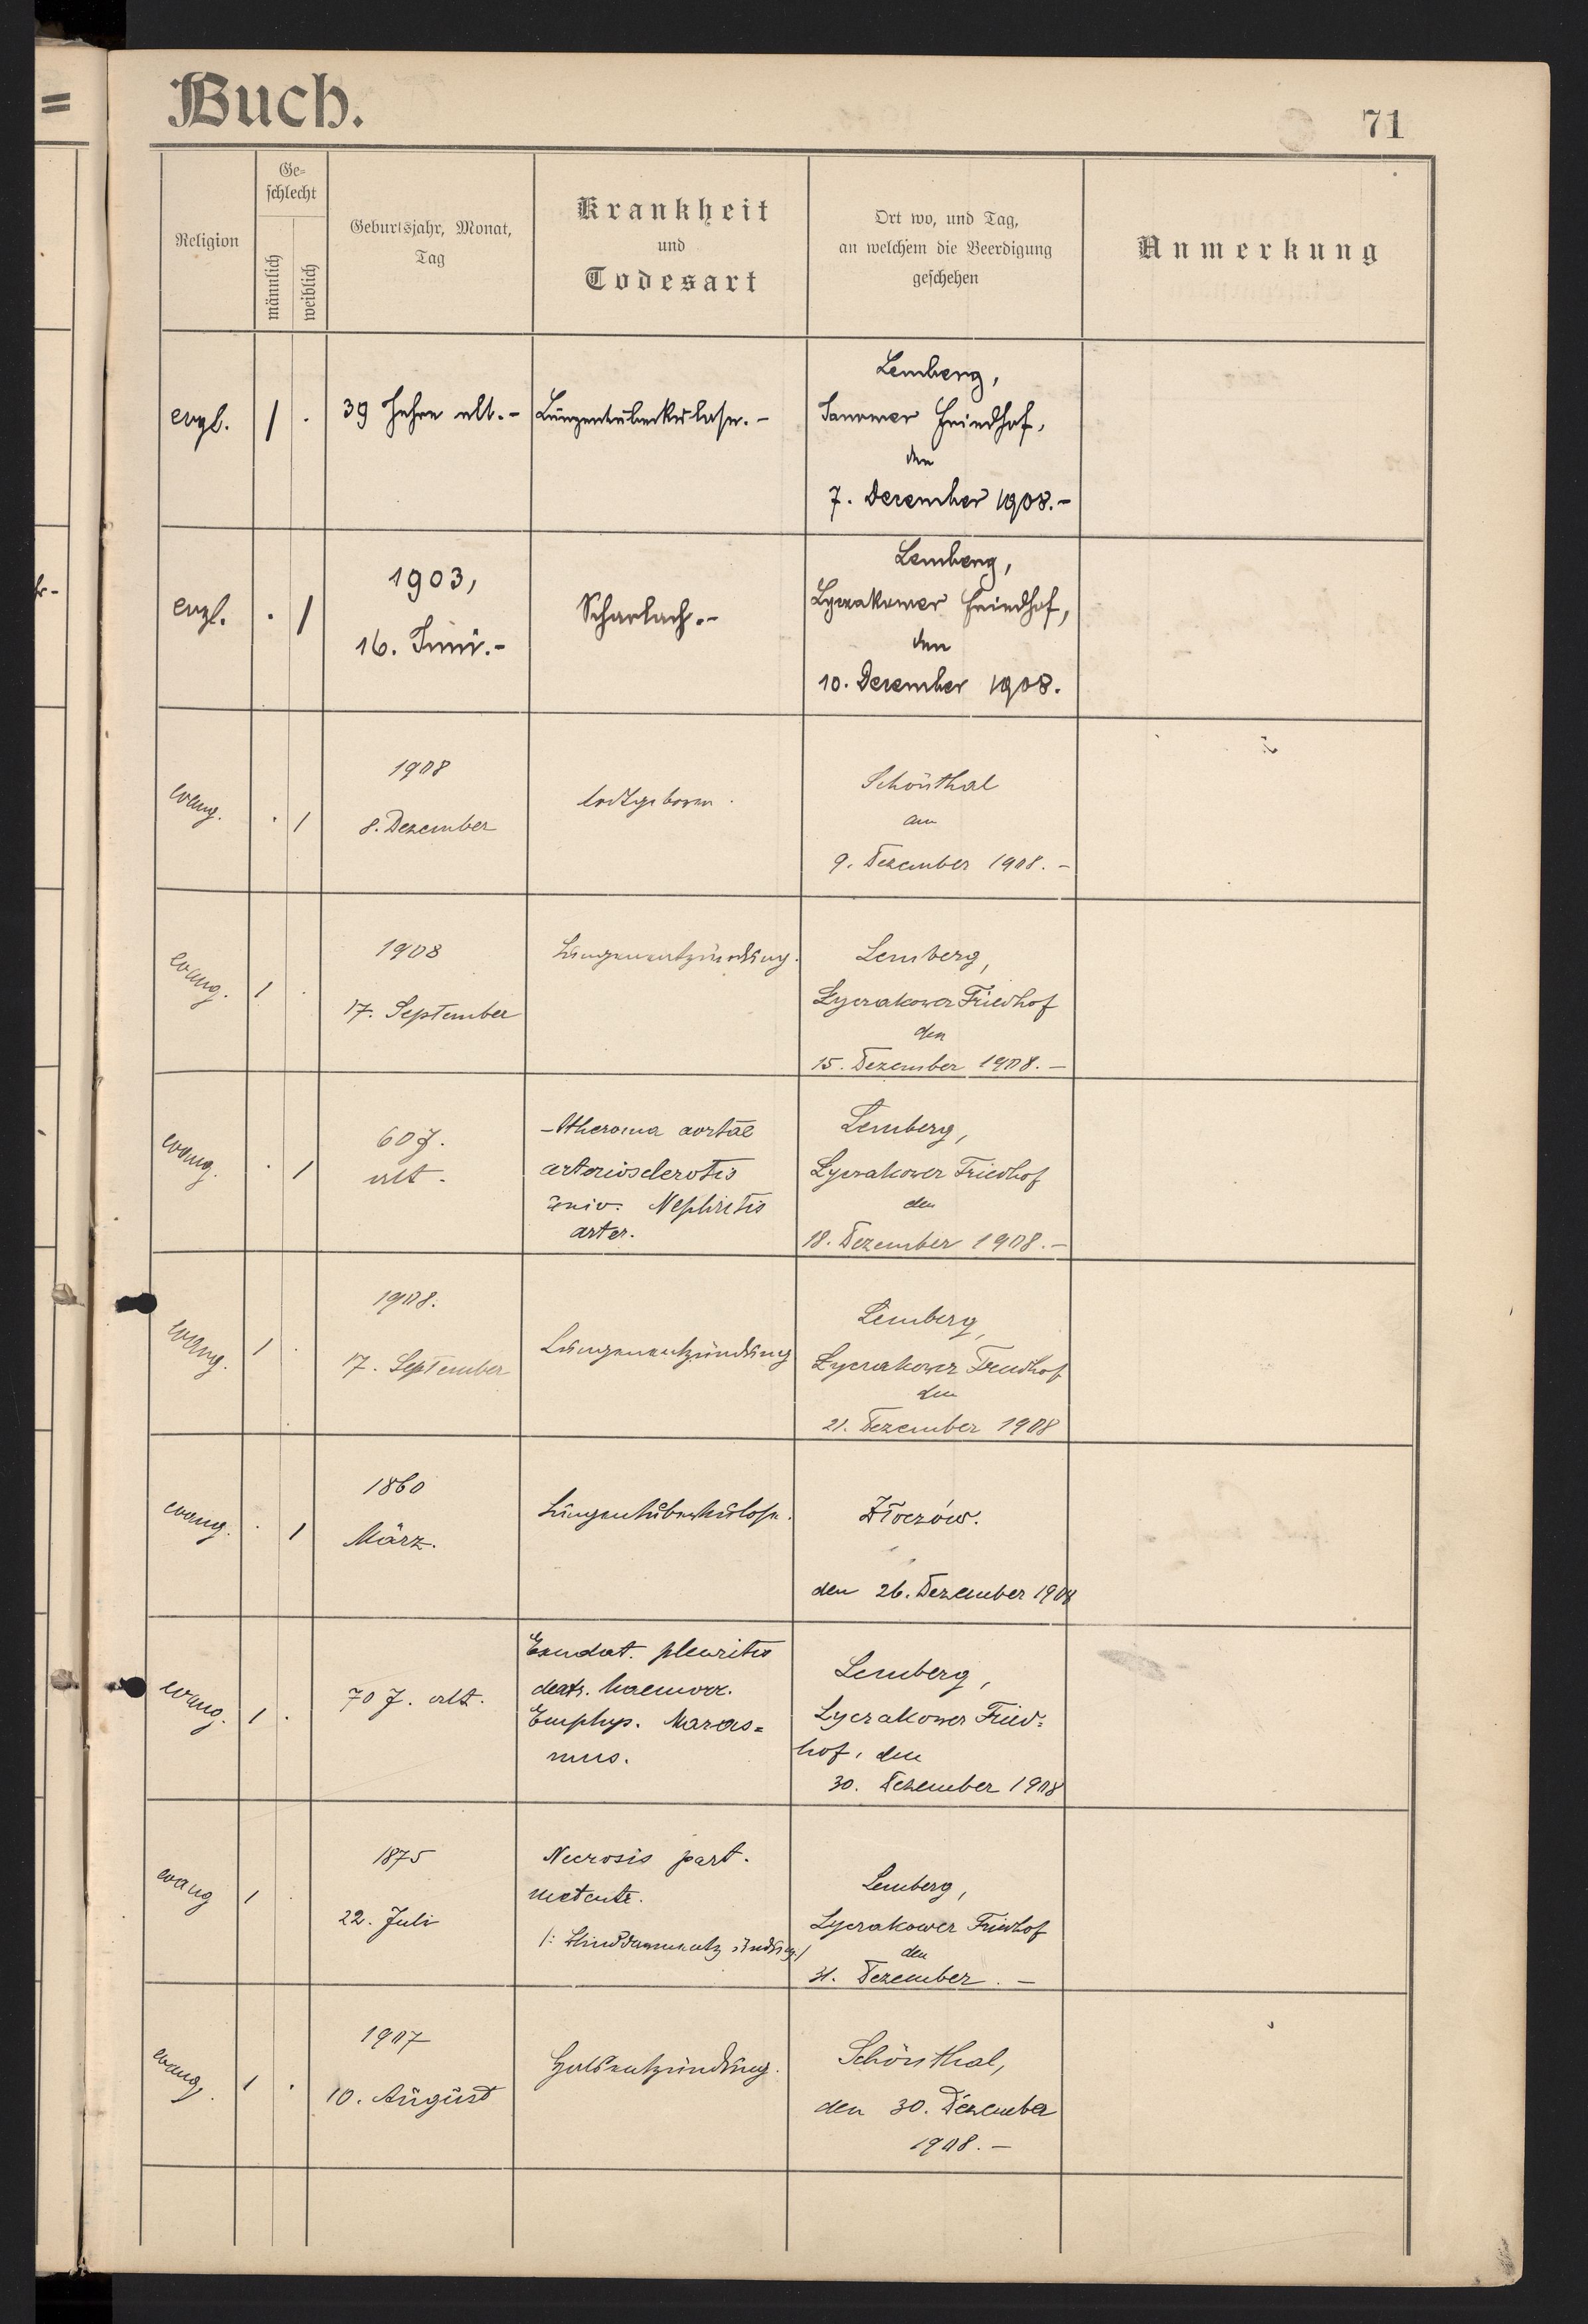 Buch.
71
Religion
Ge-
schlecht
männlich
weiblich
Geburtsjahr, Monat,
Tag
Krankheit
und
Todesart
Ort wo, und Tag,
an welchem die Beerdigung
geschehen
Anmerkung
evgl. / . 39 Jahre alt.- Lungentuberkulose.-
Lemberg,
Janower Friedhof,
den
7. Dezember 1908.-
evgl. . /
1903,
16. Juni.-
Scharlach.-
Lemberg,
Lyczakower Friedhof,
den
10. Dezember 1908.
evang. . /
1908
8. Dezember
todtgeboren.
Schönthal
am
9. Dezember 1908.-
evang. / .
1908
17. September
Lungenentzündung.
Lemberg,
Łyczakower Friedhof
den
15. Dezember 1908.-
evang. . /
60 J.
alt.
Atheroma aortae
arteriosclerotis
univ. Nephritis
arter.
Lemberg,
Łyczakower Friedhof
den
18. Dezember 1908.-
evang. / .
1908.
17. September
Lungenentzündung
Lemberg,
Łyczakower Friedhof
den
21. Dezember 1908
evang. . /
1860
März.
Lungentuberkulose.
Złoczów.
den 26. Dezember 1908
evang. / .
70 J. alt.
Exudat. pleuritis
dextr. haemorr.
Emphys. Maras=
mus.
Lemberg,
Lyczakower Fried=
hof, den
30. Dezember 1908
evang / .
1875
22. Juli
Necrosis part.
/: Blinddarmentzündung:/
Lemberg,
Lyczakower Friedhof
den
31. Dezember.-
evang. / .
1907
10. August
Halsentzündung.
Schönthal,
den 30. Dezember
1908.-